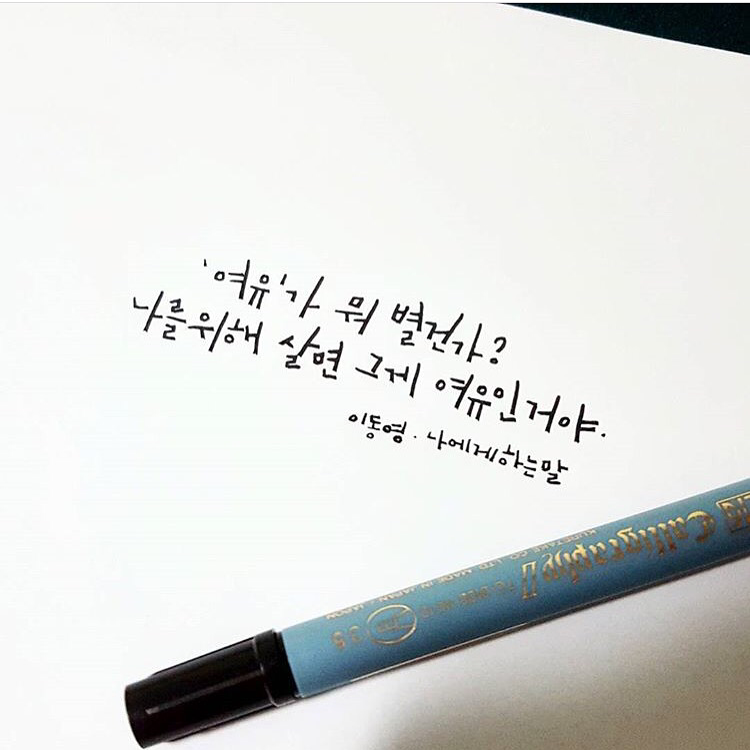 '여유'가 뭐 별건가?
나를위해 살면 그게 여유인거야.
이동영. 나에게하는말
ZIG Calligraphy II
KURETAKE CO., LTD. MADE IN JAPAN / JAPON
3.5